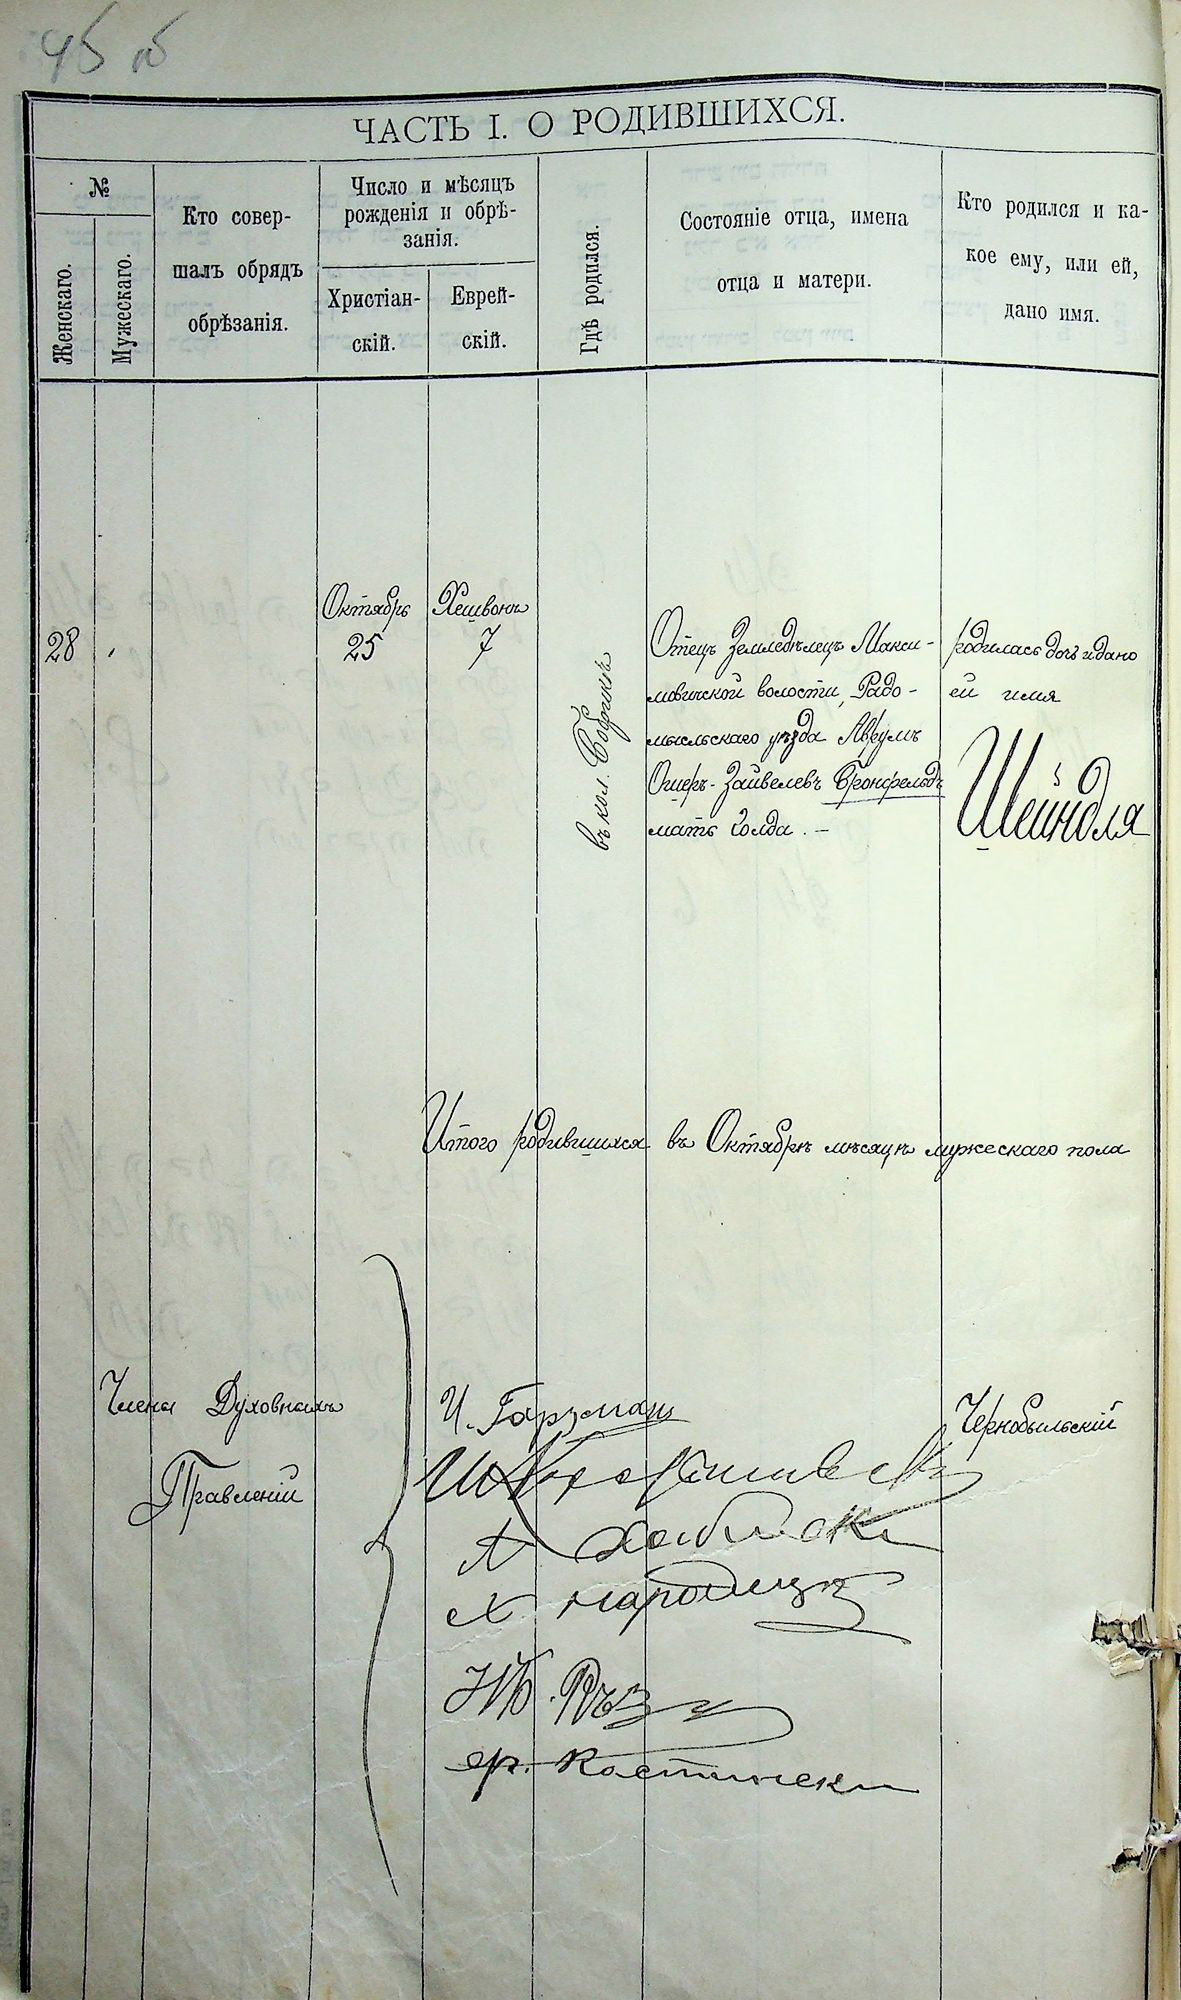 45 об
ЧАСТЬ I. О РОДИВШИХСЯ.
№
Женскаго.
Мужескаго.
Кто совер-
шалъ обрядъ
обрѣзанія.
Число и мѣсяцъ
рожденія и обрѣ-
занія.
Христіан-
скій.
Еврей-
скій.
Гдѣ родился.
Состояніе отца, имена
отца и матери.
Кто родился и ка-
кое ему, или ей,
дано имя.
28
Октябрь
25
Хешвонъ
7
въ кол.
Отецъ Земледѣлецъ Макси-
мовичской волости, Радо-
мысльскаго уѣзда Аврумъ
Ошеръ-Зайвелевъ Бронфельдъ
мать Голда. —
родилась дочь и дано
ей имя
Шейндля
Итого родившихся въ Октябрѣ мѣсяцѣ мужескаго пола
Члены Духовныхъ
Правленій
И.
Чернобыльскій
А
Х